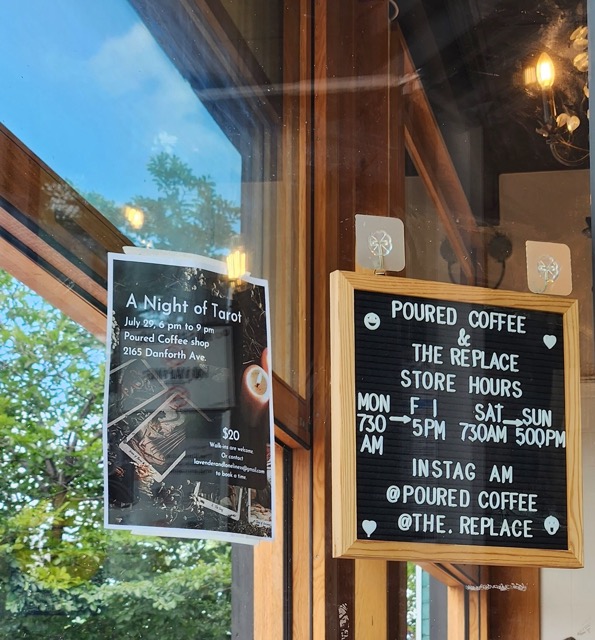 A Night of Tarot
July 29, 6 pm to 9 pm
Poured Coffee shop
2165 Danforth Ave.
$20
Walk-ins are welcome.
Or contact
lavenderandloneliness@gmail.com
to book a time.
POURED COFFEE
&
THE REPLACE
STORE HOURS
MON F I SAT→SUN
730→5PM 730AM 500PM
AM
INSTAG AM
@POURED COFFEE
@THE. REPLACE